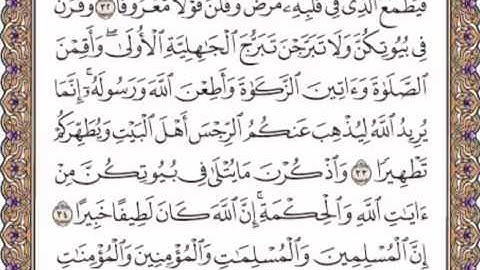 فَيَطْمَعَ ٱلَّذِى فِى قَلْبِهِۦ مَرَضٌ وَقُلْنَ قَوْلًا مَّعْرُوفًا ٣٢ وَقَرْنَ
فِى بُيُوتِكُنَّ وَلَا تَبَرَّجْنَ تَبَرُّجَ ٱلْجَـٰهِلِيَّةِ ٱلْأُولَىٰ ۖ وَأَقِمْنَ
ٱلصَّلَوٰةَ وَءَاتِينَ ٱلزَّكَوٰةَ وَأَطِعْنَ ٱللَّهَ وَرَسُولَهُۥٓ ۚ إِنَّمَا
يُرِيدُ ٱللَّهُ لِيُذْهِبَ عَنكُمُ ٱلرِّجْسَ أَهْلَ ٱلْبَيْتِ وَيُطَهِّرَكُمْ
تَطْهِيرًا ٣٣ وَٱذْكُرْنَ مَا يُتْلَىٰ فِى بُيُوتِكُنَّ مِنْ
ءَايَـٰتِ ٱللَّهِ وَٱلْحِكْمَةِ ۚ إِنَّ ٱللَّهَ كَانَ لَطِيفًا خَبِيرًا ٣٤
إِنَّ ٱلْمُسْلِمِينَ وَٱلْمُسْلِمَـٰتِ وَٱلْمُؤْمِنِينَ وَٱلْمُؤْمِنَـٰتِ